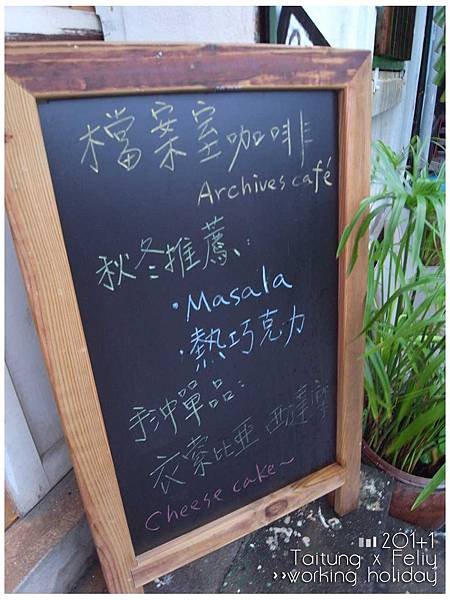 檔案室咖啡
Archives café
秋冬推薦:
·Masala
·熱巧克力
手沖單品:
衣索比亞 西達摩
Cheese cake~
201+1
Taitung x Feliy
››working holiday